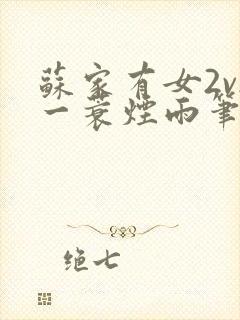 蘇家有女2v
一蓑煙雨筆
绝七